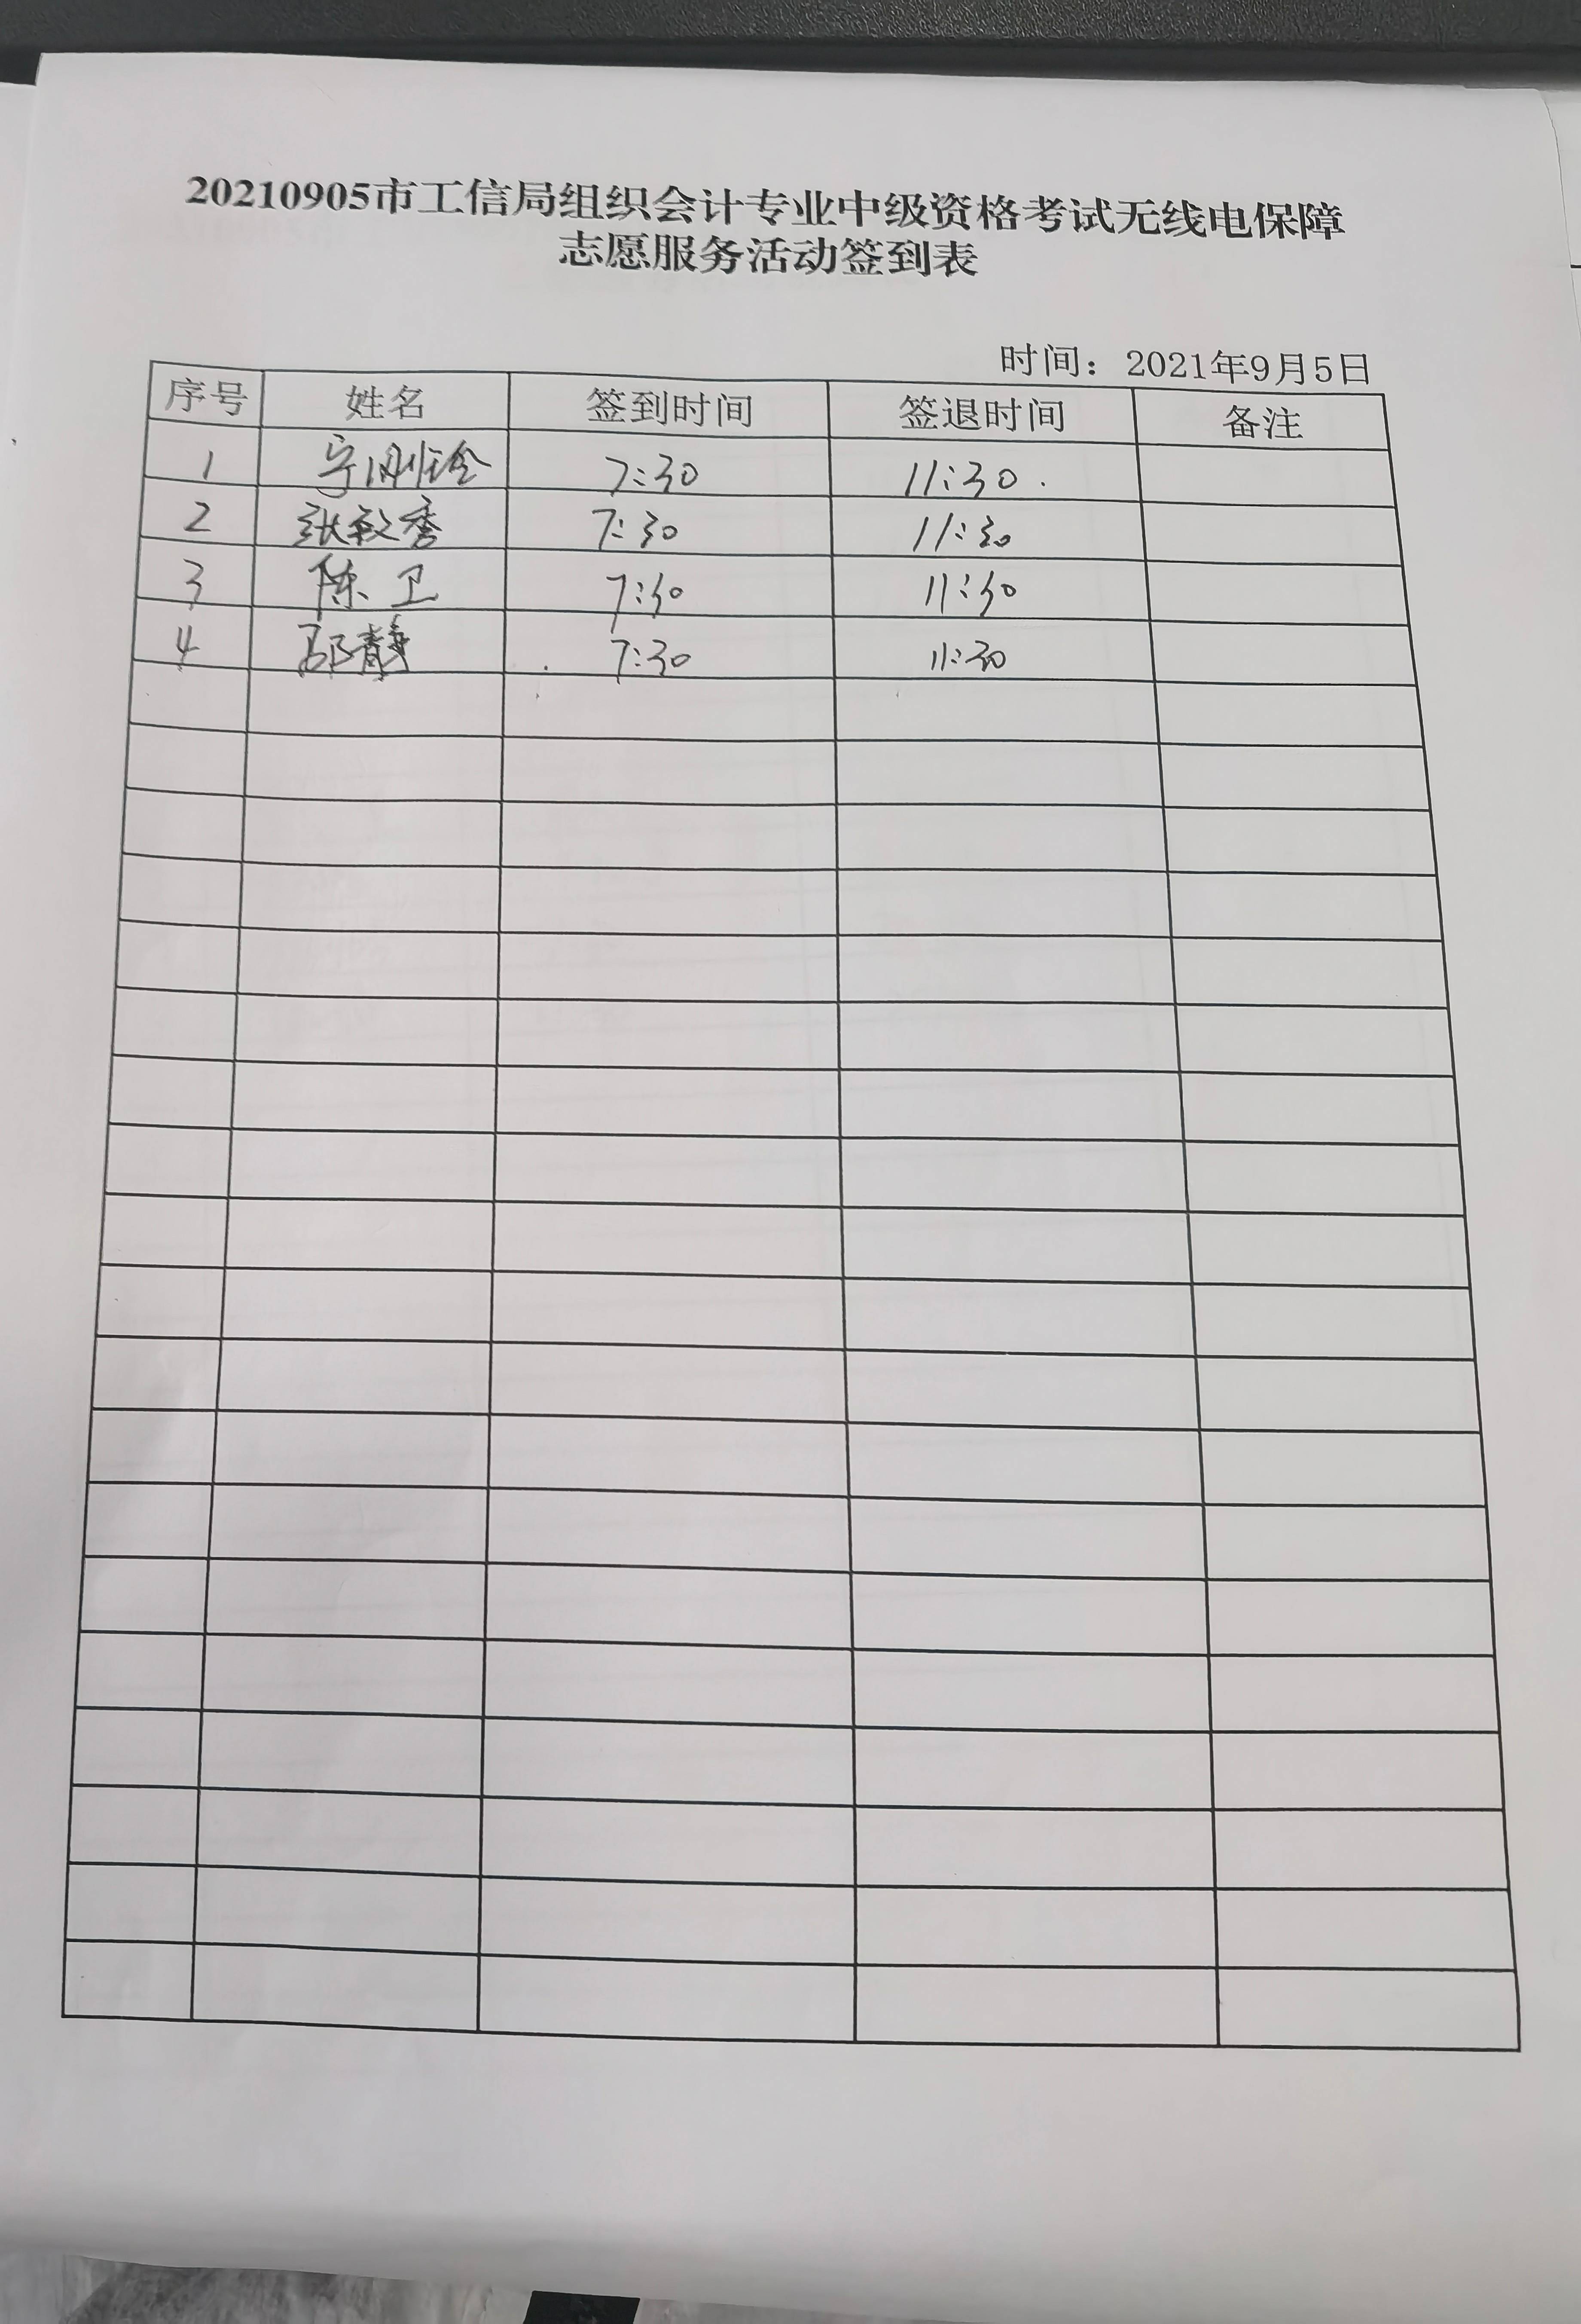 20210905市工信局组织会计专业中级资格考试无线电保障
志愿服务活动签到表
时间：2021年9月5日
序号 姓名 签到时间 签退时间 备注
1 7:30 11:30
2 张敏秀 7:30 11:30
3 陈卫 7:30 11:30
4 邵静 7:30 11:30